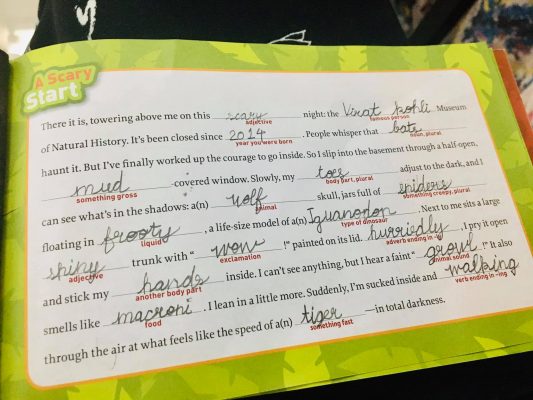 A Scary
Start
There it is, towering above me on this scary night: the Virat Kohli Museum
adjective famous person
of Natural History. It's been closed since 2014. People whisper that bats
year you were born noun, plural
haunt it. But I've finally worked up the courage to go inside. So I slip into the basement through a half-open,
mud -covered window. Slowly, my toes adjust to the dark, and I
something gross body part, plural
can see what's in the shadows: a(n) wolf skull, jars full of spiders
animal something creepy, plural
floating in frooty, a life-size model of a(n) Iguanodon. Next to me sits a large
liquid type of dinosaur
shiny trunk with "wow!" painted on its lid. hurriedly, I pry it open
adjective exclamation adverb ending in -ly
and stick my hands inside. I can't see anything, but I hear a faint "growl!" It also
another body part animal sound
smells like macroni. I lean in a little more. Suddenly, I'm sucked inside and walking
food verb ending in -ing
through the air at what feels like the speed of a(n) tiger—in total darkness.
something fast